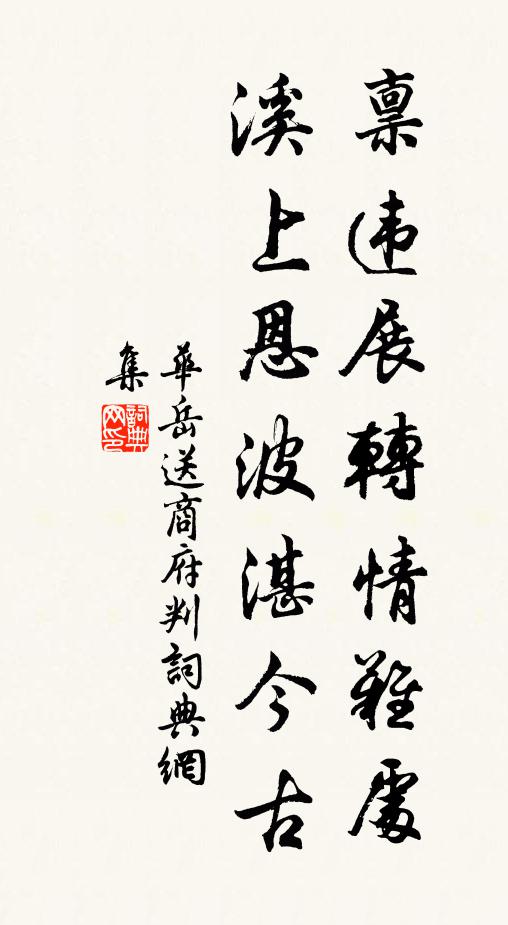 禀违展轉情難處
溪上恩波湛今古
華岳送商府判詞典網
集
詞典网印